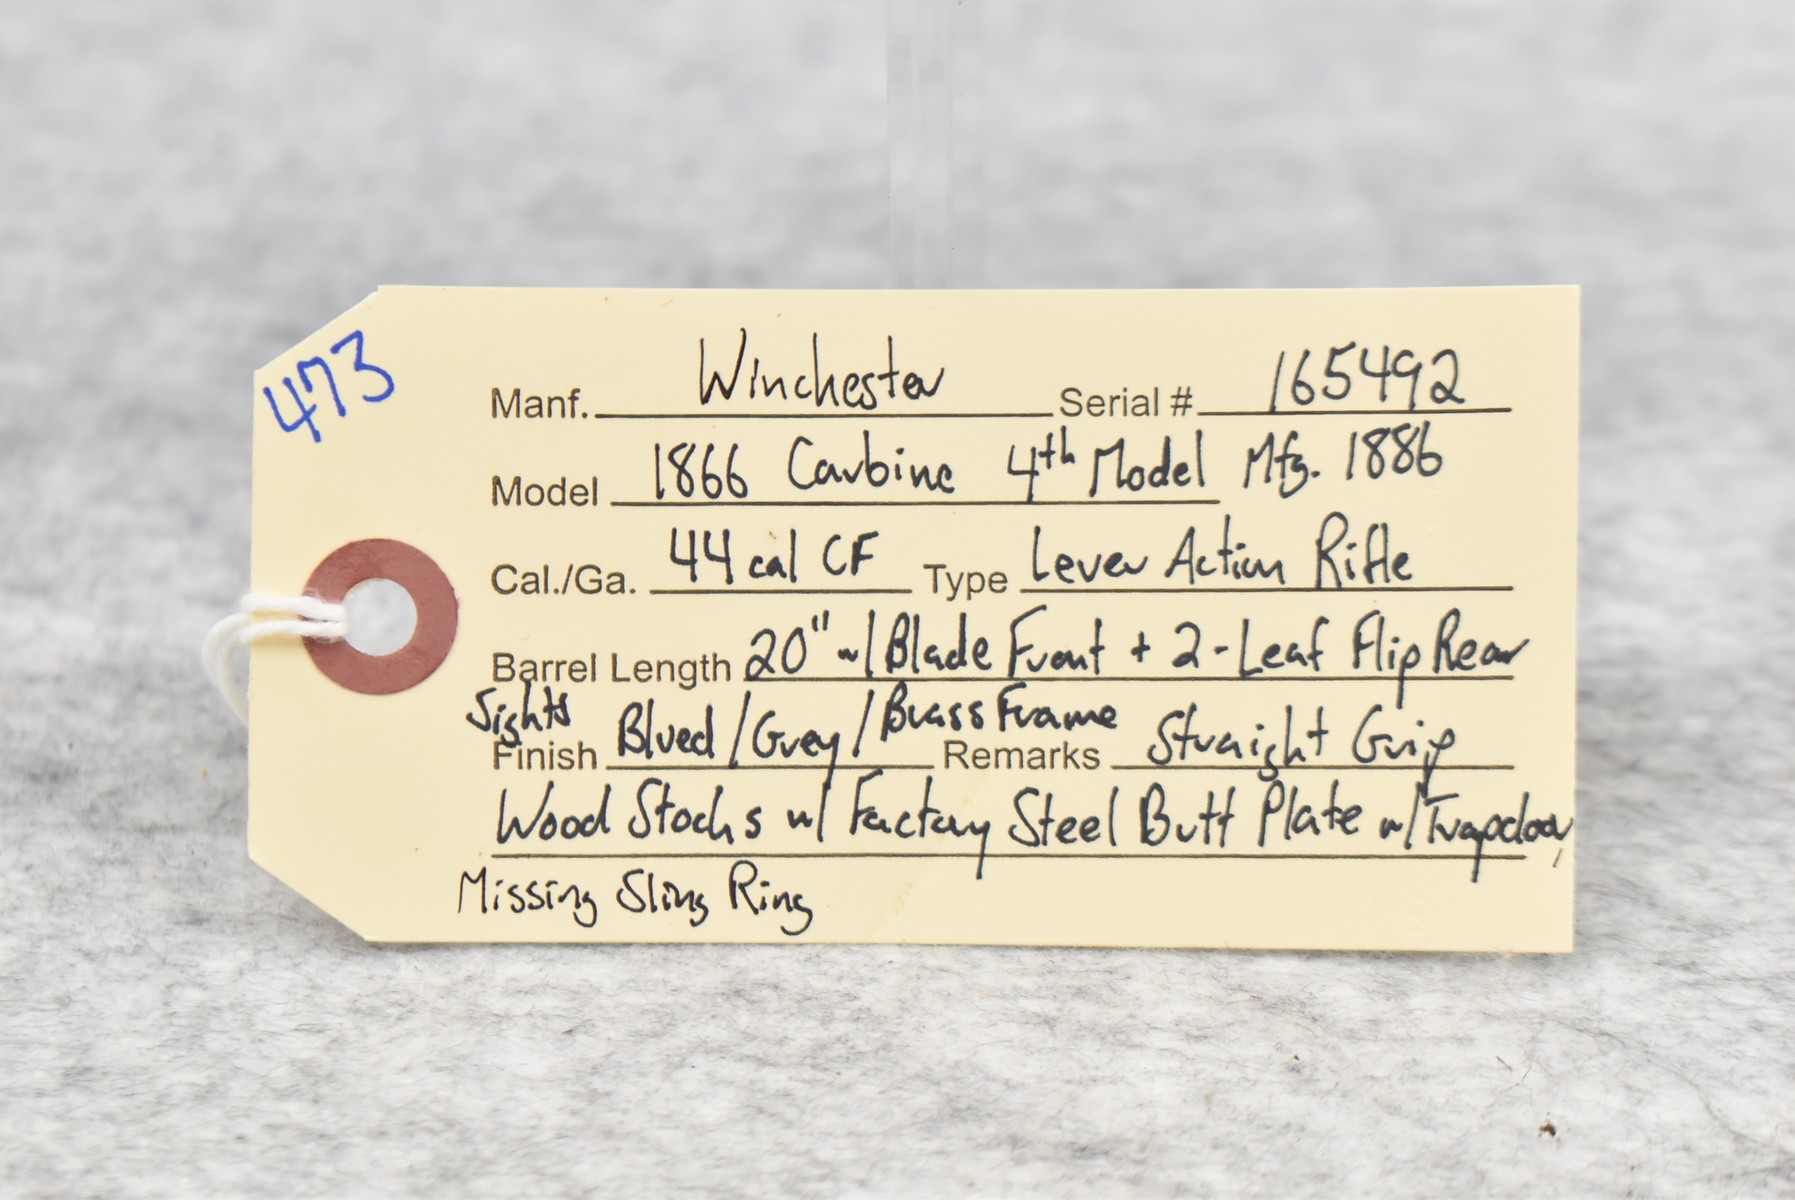 473
Manf. Winchester Serial # 165492
Model 1866 Carbine 4th Model Mfg. 1886
Cal./Ga. 44 cal CF Type Lever Action Rifle
Barrel Length 20" w/ Blade Front + 2-Leaf Flip Rear
Sights
Finish Blued / Grey / Brass Frame Remarks Straight Grip
Wood Stocks w/ Factory Steel Butt Plate w/ Trapdoor,
Missing Sling Ring